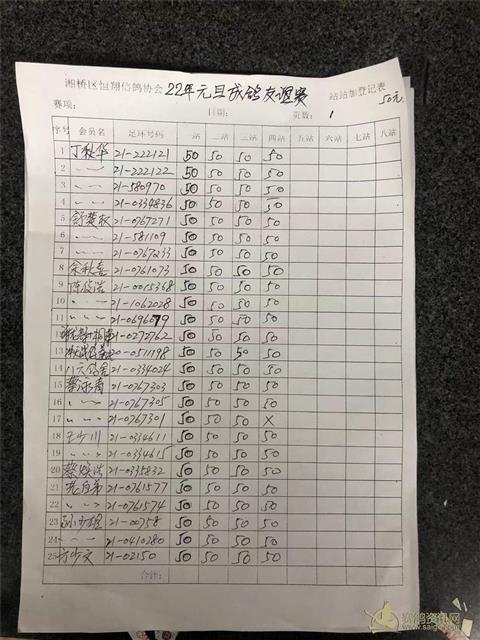 湘桥区恒翔信鸽协会 22年元旦成鸽友谊赛 站站加登记表
赛项: 日期: 页数: 1 50元
序号 会员名 足环号码 一站 二站 三站 四站 五站 六站 七站 八站
1 丁秋华 21-222121 50 50 50 50
2 〃 21-222122 50 50 50 50
3 〃 21-580970 50 50 50 50
4 〃 21-0334836 50 50 50 50
5 21-0767271 50 50 50 50
6 〃 21-581109 50 50 50 50
7 〃 21-0767233 50 50 50 50
8 余秋喜 21-0761073 50 50 50 50
9 陈俊浩 21-0015368 50 50 50 50
10 〃 21-1062028 50 50 50 50
11 〃 21-0696079 50 50 50 50
12 21-0272762 50 50 50 50
13 20-0511198 50 50 50 50
14 八六鸽舍 21-0334024 50 50 50 50
15 21-0767303 50 50 50 50
16 〃 21-0767305 50 50 50 50
17 〃 21-0767301 50 50 50 X
18 王少川 21-0334611 50 50 50 50
19 〃 21-0334615 50 50 50 50
20 蔡焕浩 21-0335832 50 50 50 50
21 21-0761577 50 50 50 50
22 〃 21-0761574 50 50 50 50
23 21-00758 50 50 50 50
24 〃 21-0410280 50 50 50 50
25 方少文 21-02150 50 50 50 50
合计:
赛鸽资讯网
www.saige.com